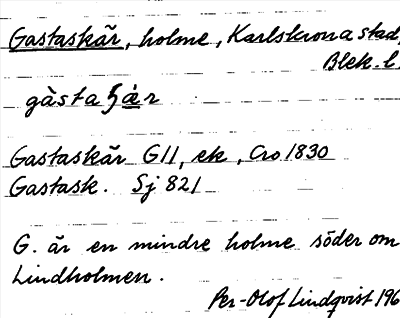 Gastaskär, holme, Karlskrona stad,
Blek. l.
gàstaʃǽr
Gastaskär G11, ek, Cro 1830
Gastask. Sj 821
G. är en mindre holme söder om
Lindholmen.
Per-Olof Lindqvist 196